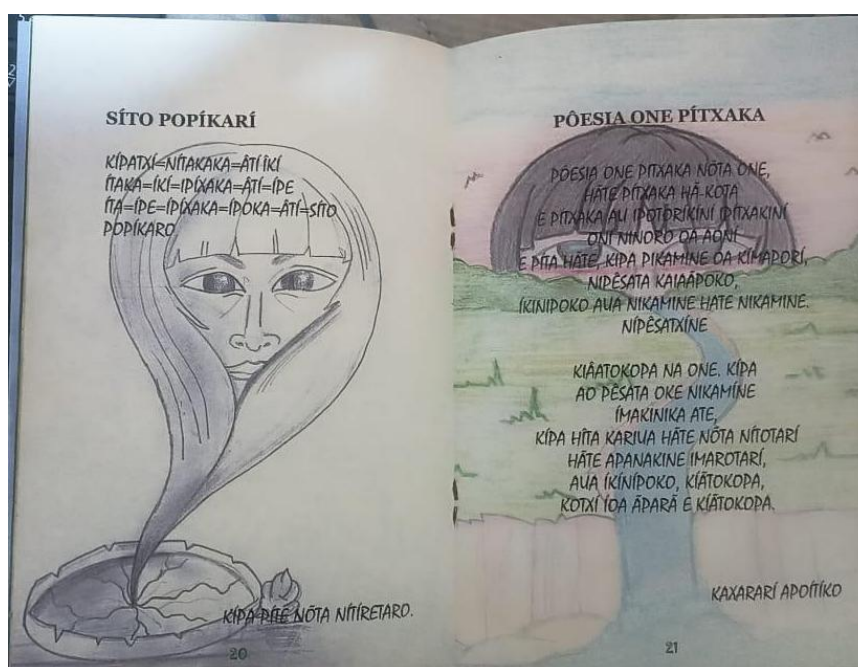 SÍTO POPÍKARÍ
KÍPATXÍ=NÍTAKAKA=ÂTÍ ÍKÍ
ÍTAKA=ÍKÍ=IPÍXAKA=ÂTÍ=ÍPE
ÍTA=ÍPE=IPÍXAKA=ÍPOKA=ÂTÍ=SÍTO
POPÍKARO
KÍPA PÍTÊ NÕTA NÍTÍRETARO.
20
PÔESIA ONE PÍTXAKA
PÔESIA ONE PITXAKA NÕTA ONE,
HÃTE PITXAKA HÃ-KOTA
E PITXAKA AU IPOTORÍKÍNÍ IPITXAKINÍ
ONÍ NINORO OA AONÍ
E PÍTA HÃTE, KÍPA PIKAMINE OA KÍMAPORÍ,
NIPÊSATA KAIAÃPOKO,
ÍKINIPOKO AUA NIKAMINE HATE NIKAMINE.
NÍPÊSATXÍNE
KIÂATOKOPA NA ONE. KÍPA
AO PÊSATA OKE NIKAMÍNE
ÍMAKÍNIKA ATE,
KÍPA HÍTA KARIUA HÃTE NÕTA NÍTOTARÍ
HÃTE APANAKINE IMAROTARÍ,
AUA ÍKÍNÍPOKO, KÍÃTOKOPA,
KOTXÍ ÍOA ÃPARÃ E KÍÃTOKOPA.
KAXARARÍ APOÍTÍKO
21